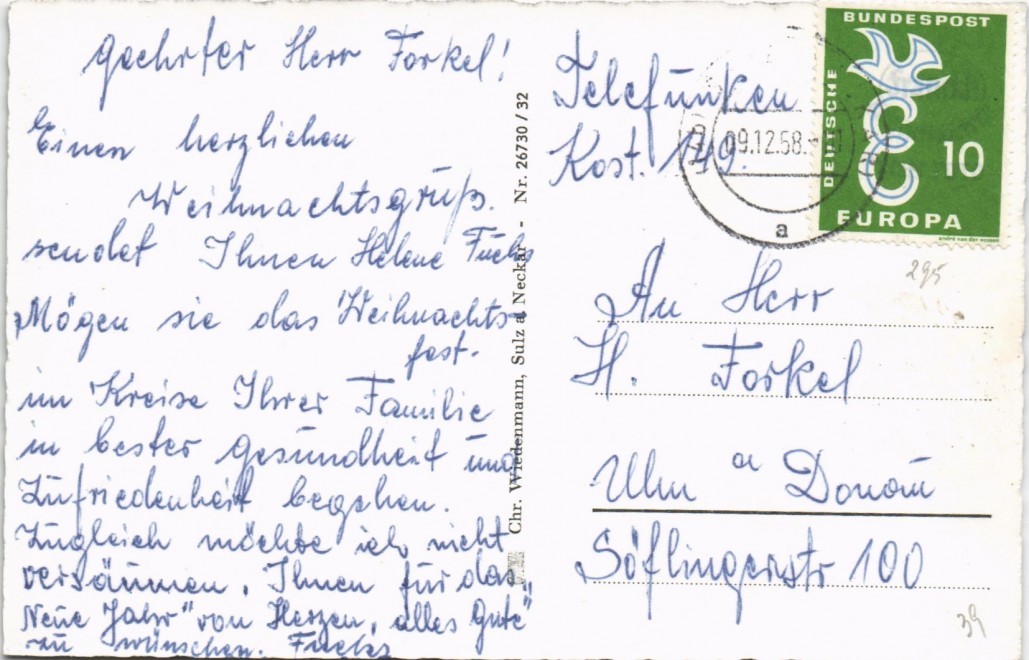 geehrter Herr Forkel!
Einen herzlichen
Weihnachtsgrüß.
sendet Ihnen Helene Fuchs
"Mögen sie das Weihnachts-
fest.
im Kreise Ihrer Familie
in bester gesundheit und
Zufriedenheit begehen.
Zugleich möchte ich nicht
versäumen, Ihnen für das
Neue Jahr" von Herzen, alles Gute"
zu wünschen. Fuchs
Chr. Wiedenmann, Sulz a Neckar - Nr. 26730/32
Telefunken
Kost. 149.
09.12.58.
a
DEUTSCHE
BUNDESPOST
10
EUROPA
295
An Herr
H. Forkel
Ulm a Donau
Söflingerstr 100
39